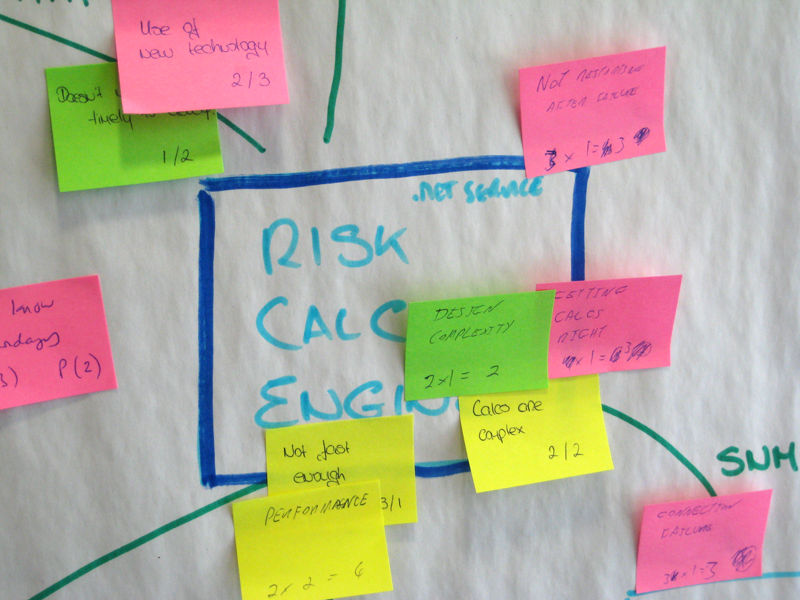 Use of
new technology
2/3
Doesn't
timely
1/2
NOT RESPONDING
AFTER FAILURE
3 x 1 = 3
.NET SERVICE
RISK
CALC
ENGIN
know
P(2)
DESIGN
COMPLEXITY
2x1 = 2
GETTING
CALCS
RIGHT
x 1 = 3
Calcs are
complex
2/2
Not fast
enough
3/1
PERFORMANCE
2 x 2 = 6
SNM
CONNECTION
FAILURE
3 x 1 = 3